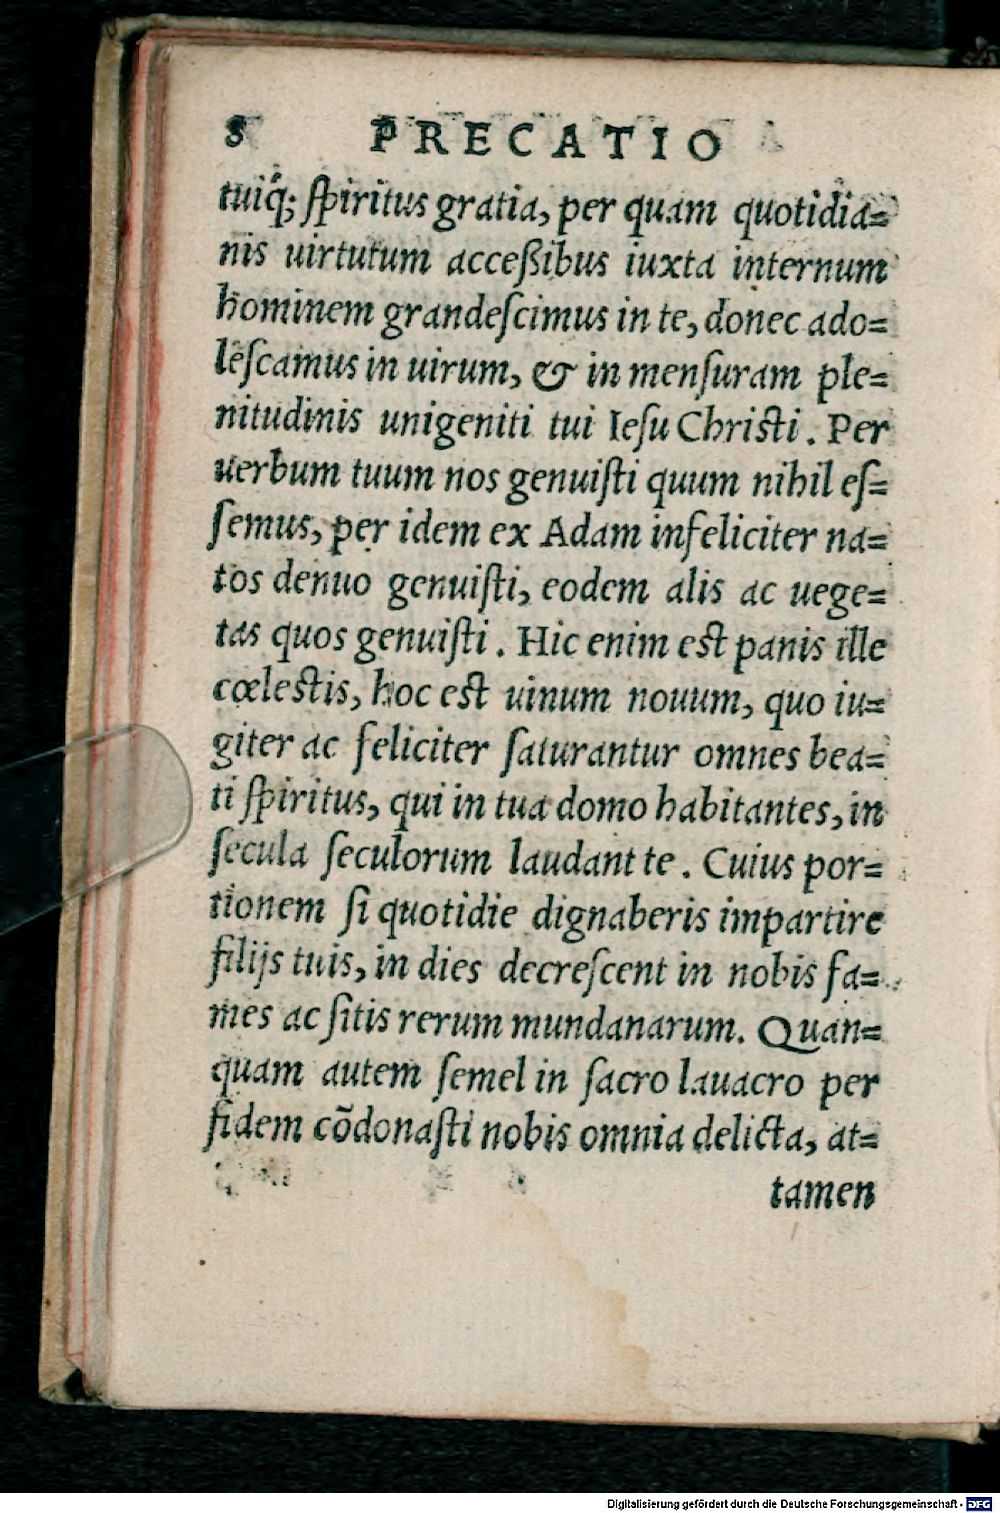 8 PRECATIO
tuiq́; ſpiritus gratia, per quam quotidia=
nis uirtutum acceßibus iuxta internum
hominem grandeſcimus in te, donec ado=
leſcamus in uirum, & in menſuram ple=
nitudinis unigeniti tui Ieſu Chriſti. Per
uerbum tuum nos genuiſti quum nihil eſ=
ſemus, per idem ex Adam infeliciter na=
tos denuo genuiſti, eodem alis ac uege=
tas quos genuiſti. Hic enim eſt panis ille
cœleſtis, hoc eſt uinum nouum, quo iu=
giter ac feliciter ſaturantur omnes bea=
ti ſpiritus, qui in tua domo habitantes, in
ſecula ſeculorum laudant te. Cuius por=
tionem ſi quotidie dignaberis impartire
filijs tuis, in dies decreſcent in nobis fa=
mes ac ſitis rerum mundanarum. Quan=
quam autem ſemel in ſacro lauacro per
fidem cõdonaſti nobis omnia delicta, at=
tamen
Digitalisierung gefördert durch die Deutsche Forschungsgemeinschaft - DFG